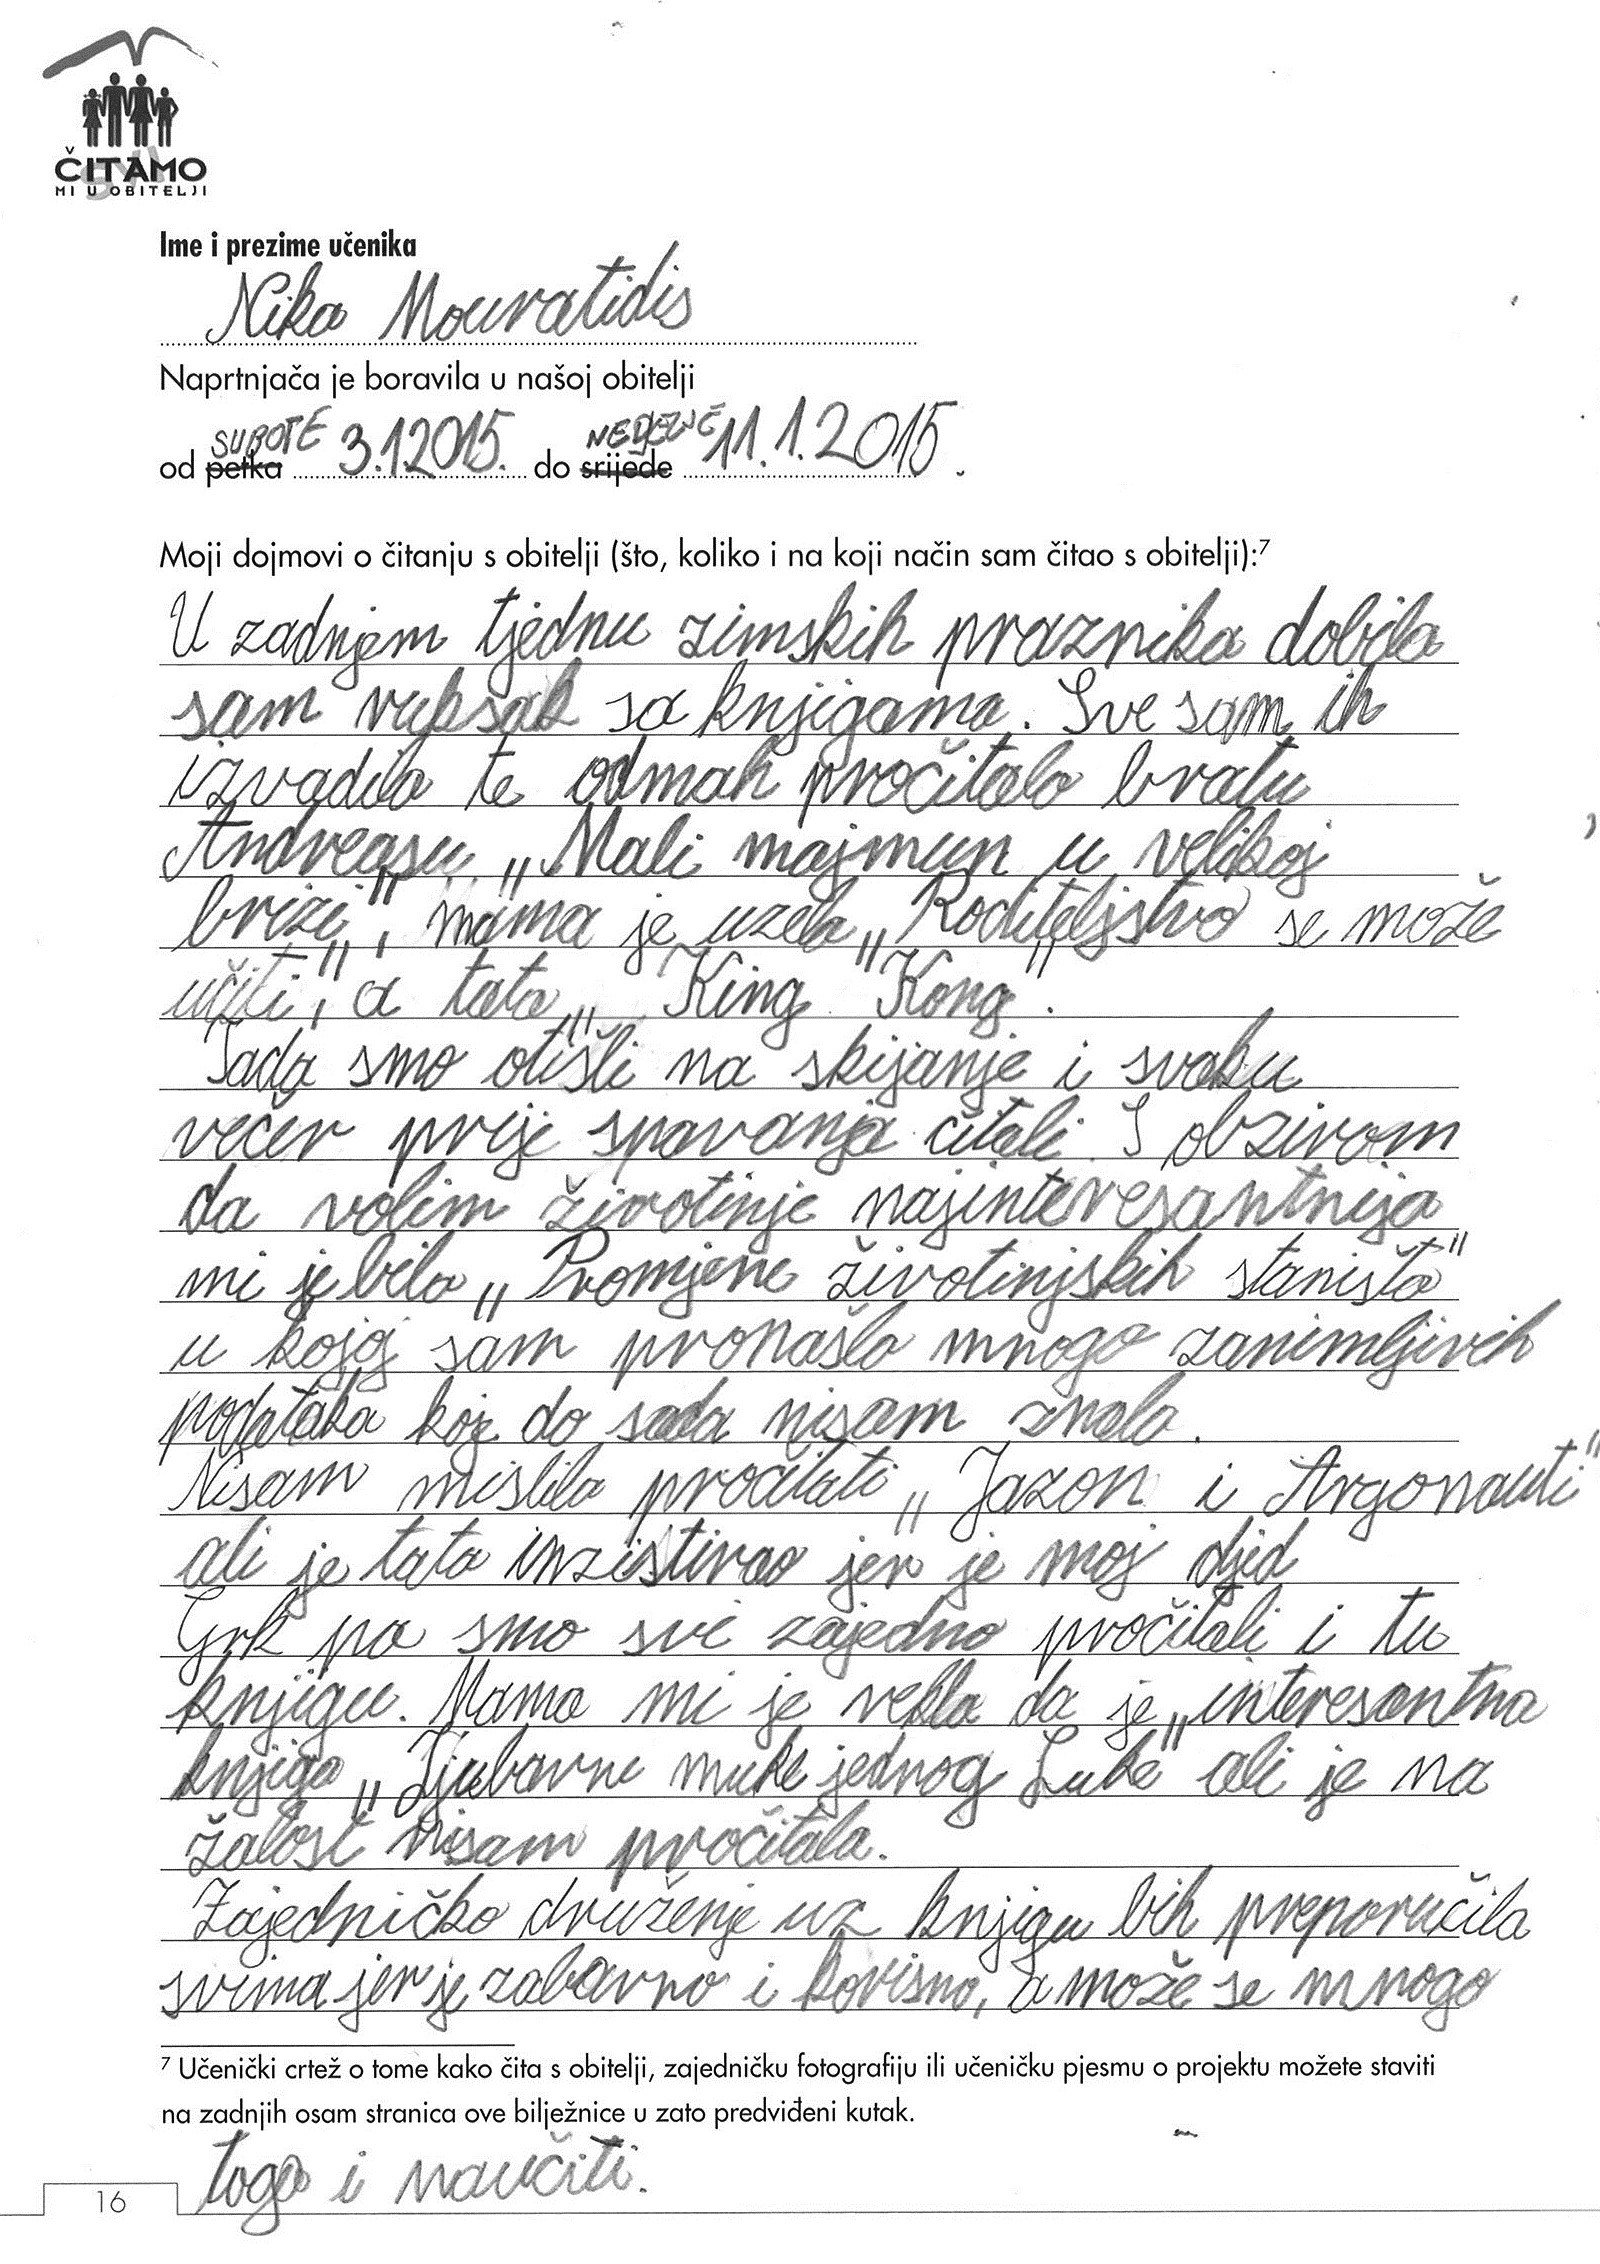 ČITAMO
SVI
MI U OBITELJI
Ime i prezime učenika
Nika Mouratidis
Naprtnjača je boravila u našoj obitelji
SUBOTE NEDJELJE
od petka 3.1.2015. do srijede 11.1.2015.
Moji dojmovi o čitanju s obitelji (što, koliko i na koji način sam čitao s obitelji):⁷
U zadnjem tjednu zimskih praznika dobila
sam ruksak sa knjigama. Sve sam ih
izvadila te odmah pročitala bratu
Andreasu „Mali majmun u velikoj
brizi", mama je uzela „Roditeljstvo se može
učiti", a tata „King Kong".
Tada smo otišli na skijanje i svaku
večer prije spavanja čitali. S obzirom
da volim životinje najinteresantnija
mi je bila „Promjene životinjskih staništa"
u kojoj sam pronašla mnogo zanimljivih
podataka koje do sada nisam znala.
Nisam mislila pročitati „Jazon i Argonauti"
ali je tata inzistirao jer je moj djed
Grk pa smo svi zajedno pročitali i tu
knjigu. Mama mi je rekla da je „interesantna
knjiga „Ljubavne muke jednog Luke" ali je na
žalost nisam pročitala.
Zajedničko druženje uz knjigu bih preporučila
svima jer je zabavno i korisno, a može se mnogo
⁷ Učenički crtež o tome kako čita s obitelji, zajedničku fotografiju ili učeničku pjesmu o projektu možete staviti
na zadnjih osam stranica ove bilježnice u zato predviđeni kutak.
toga i naučiti.
16